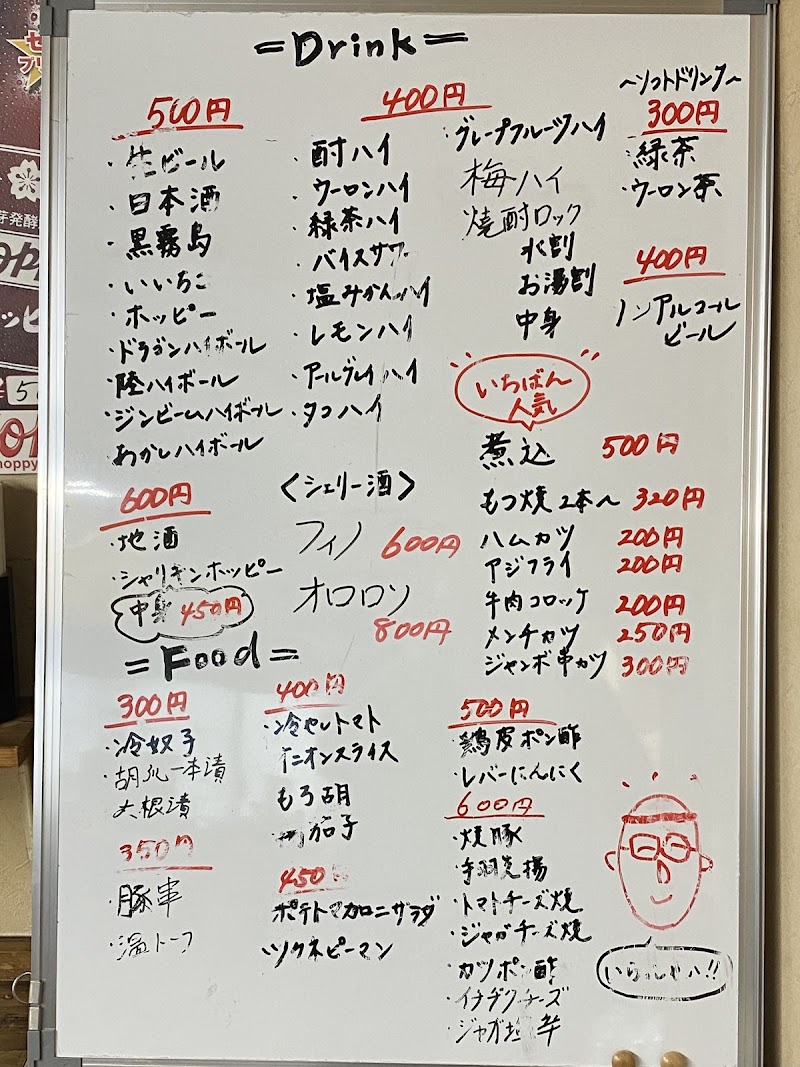 =Drink=
500円
・生ビール
・日本酒
・黒霧島
・いいちこ
・ホッピー
・ドラゴンハイボール
・陸ハイボール
・ジンビームハイボール
・あかしハイボール
600円
・地酒
・シャリキンホッピー
中身 450円
400円
・酎ハイ
・ウーロンハイ
・緑茶ハイ
・バイスサワー
・塩みかんハイ
・レモンハイ
・アールグレイハイ
・タコハイ
・グレープフルーツハイ
梅ハイ
焼酎ロック
水割
お湯割
中身
〜ソフトドリンク〜
300円
・緑茶
・ウーロン茶
400円
ノンアルコール
ビール
<シェリー酒>
フィノ 600円
オロロソ
800円
いちばん
人気
煮込 500円
もつ焼2本〜 320円
ハムカツ 200円
アジフライ 200円
牛肉コロッケ 200円
メンチカツ 250円
ジャンボ串カツ 300円
=Food=
300円
・冷奴子
・胡瓜一本漬
・大根漬
350円
・豚串
・温トーフ
400円
・冷やしトマト
オニオンスライス
もろ胡
茄子
450円
ポテトマカロニサラダ
・ツクネピーマン
500円
・鶏皮ポン酢
・レバーにんにく
600円
・焼豚
・手羽先揚
・トマトチーズ焼
・ジャガチーズ焼
・カツポン酢
・イチヂクチーズ
・ジャガ塩辛
いらっしゃい!!